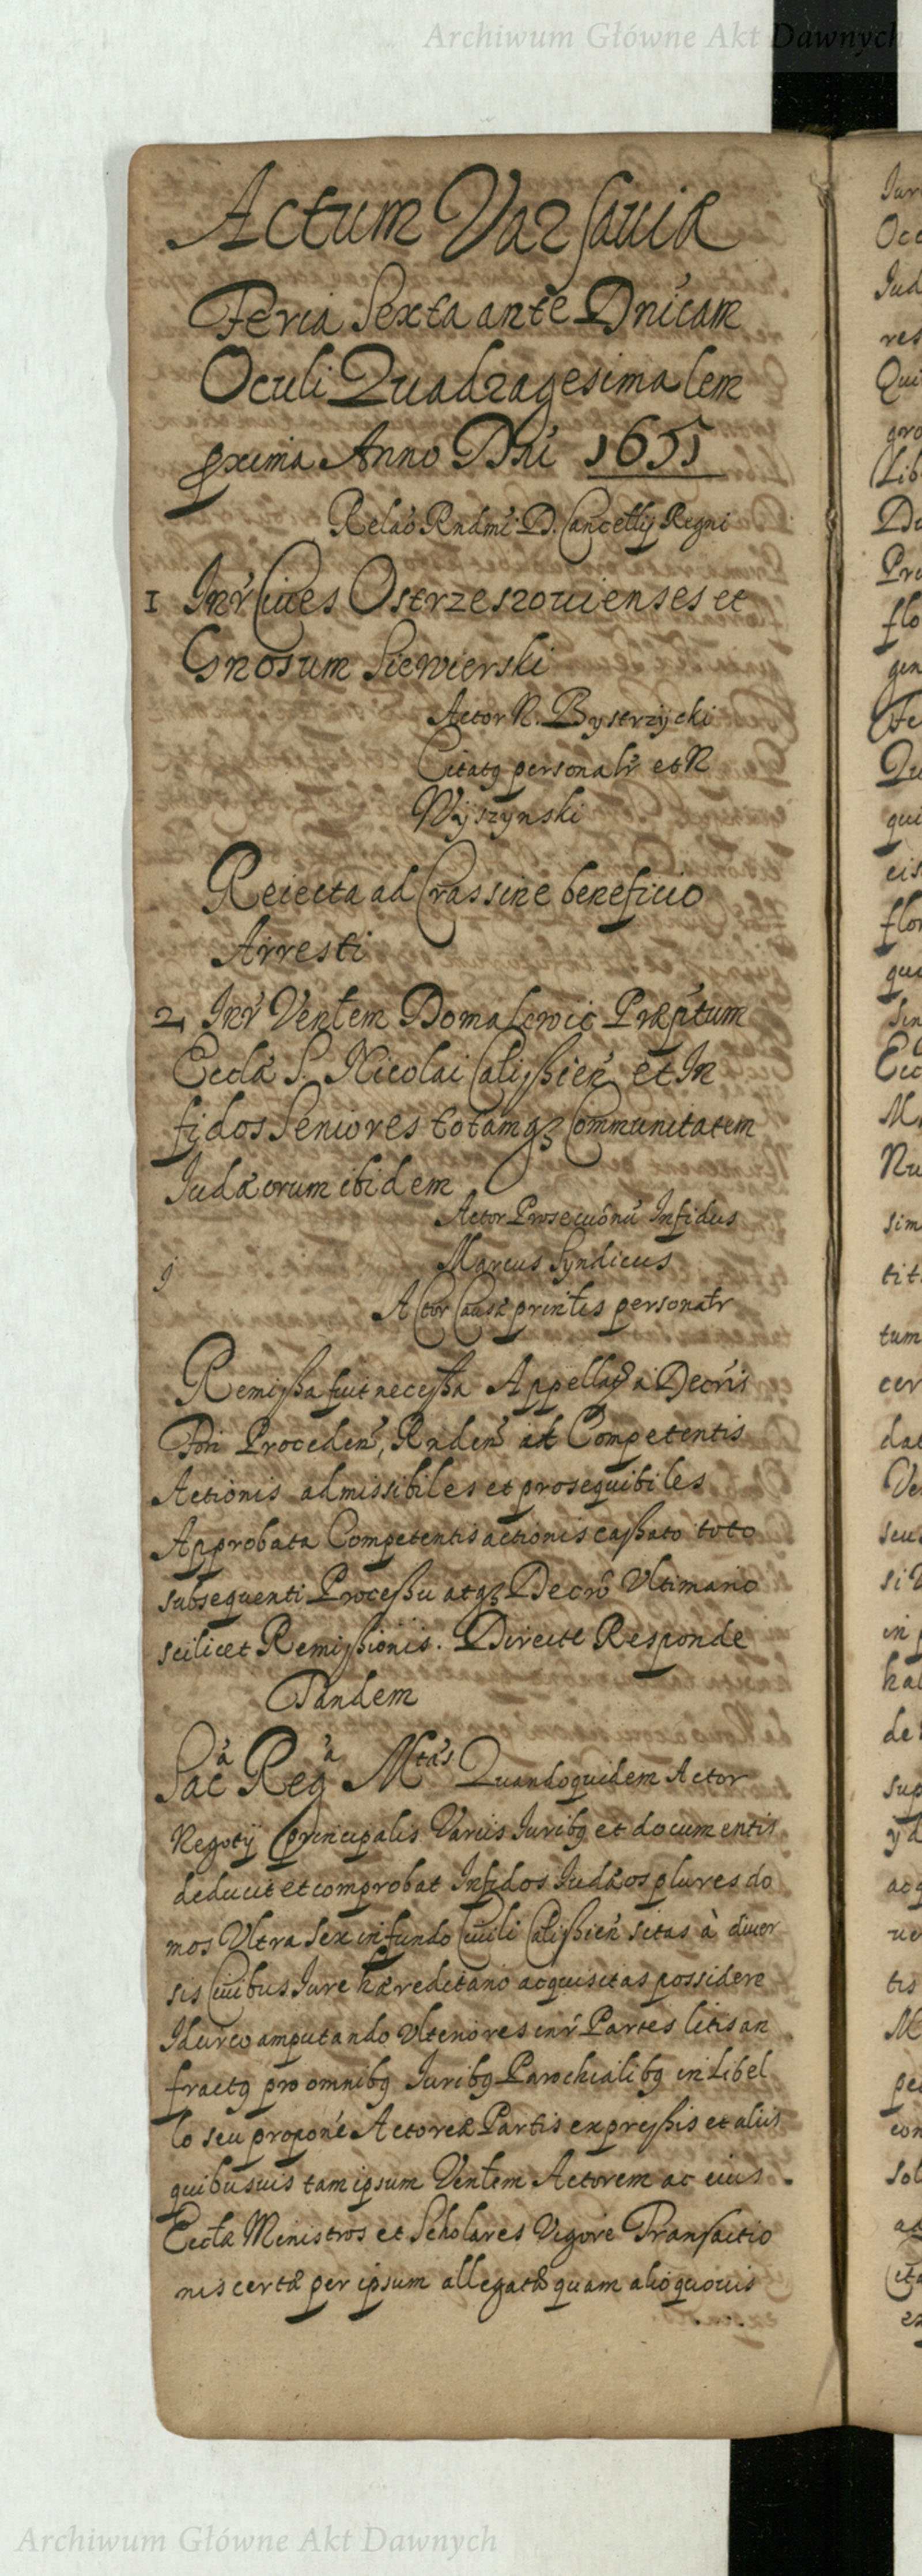 Archiwum Główne Akt Dawnych
Actum Varsaviæ
Feria Sexta ante Dnicam
Oculi Quadragesimalem
pxima Anno Dni 1651
Relao Rndmi D. Cancellij Regni
1 Intr Cives Ostrzeszovienses et
Gnosum Siewierski
Actor N. Bystrzycki
Citatq personalr et N
Wyszynski
Reiecta ad Cras sine beneficio
Arresti
2 Intr Venlem Domalewic Præptum
Eccla S. Nicolai Calissien et In
fidos Seniores totamqz Communitatem
Iudæorum ibidem
Actor Prosecuonu Infidus
Marcus Syndicus
Actor Causæ printis personalr
Remissa fuit necessa Appellao à Decris
Fori Proceden, Rnden ad Competentis
Actionis admissibiles et prosequibiles
Approbata Competentis actionis cassato toto
subsequenti Processu atqz Decro Ultimario
scilicet Remissionis. Directe Responde
Tandem
Saca Rega Mtas Quandoquidem Actor
Negotij principalis Variis Iuribq et documentis
deducit et comprobat Infidos Iudæos plures do
mos Ultra Sex in fundo Civili Calissien sitas à diver
sis Civibus Iure hæreditario acquisitas possidere
Idcirco amputando Ulteriores intr Partes litis an
fractq pro omnibq Iuribq Parochialibq in Libel
lo seu propone Actoreæ Partis expressis et aliis
quibusuis tam ipsum Venlem Actorem ac eius
Eccla Ministros et Scholares Vigore Transactio
nis certæ per ipsum allegatæ quam alio quovis
Archiwum Główne Akt Dawnych